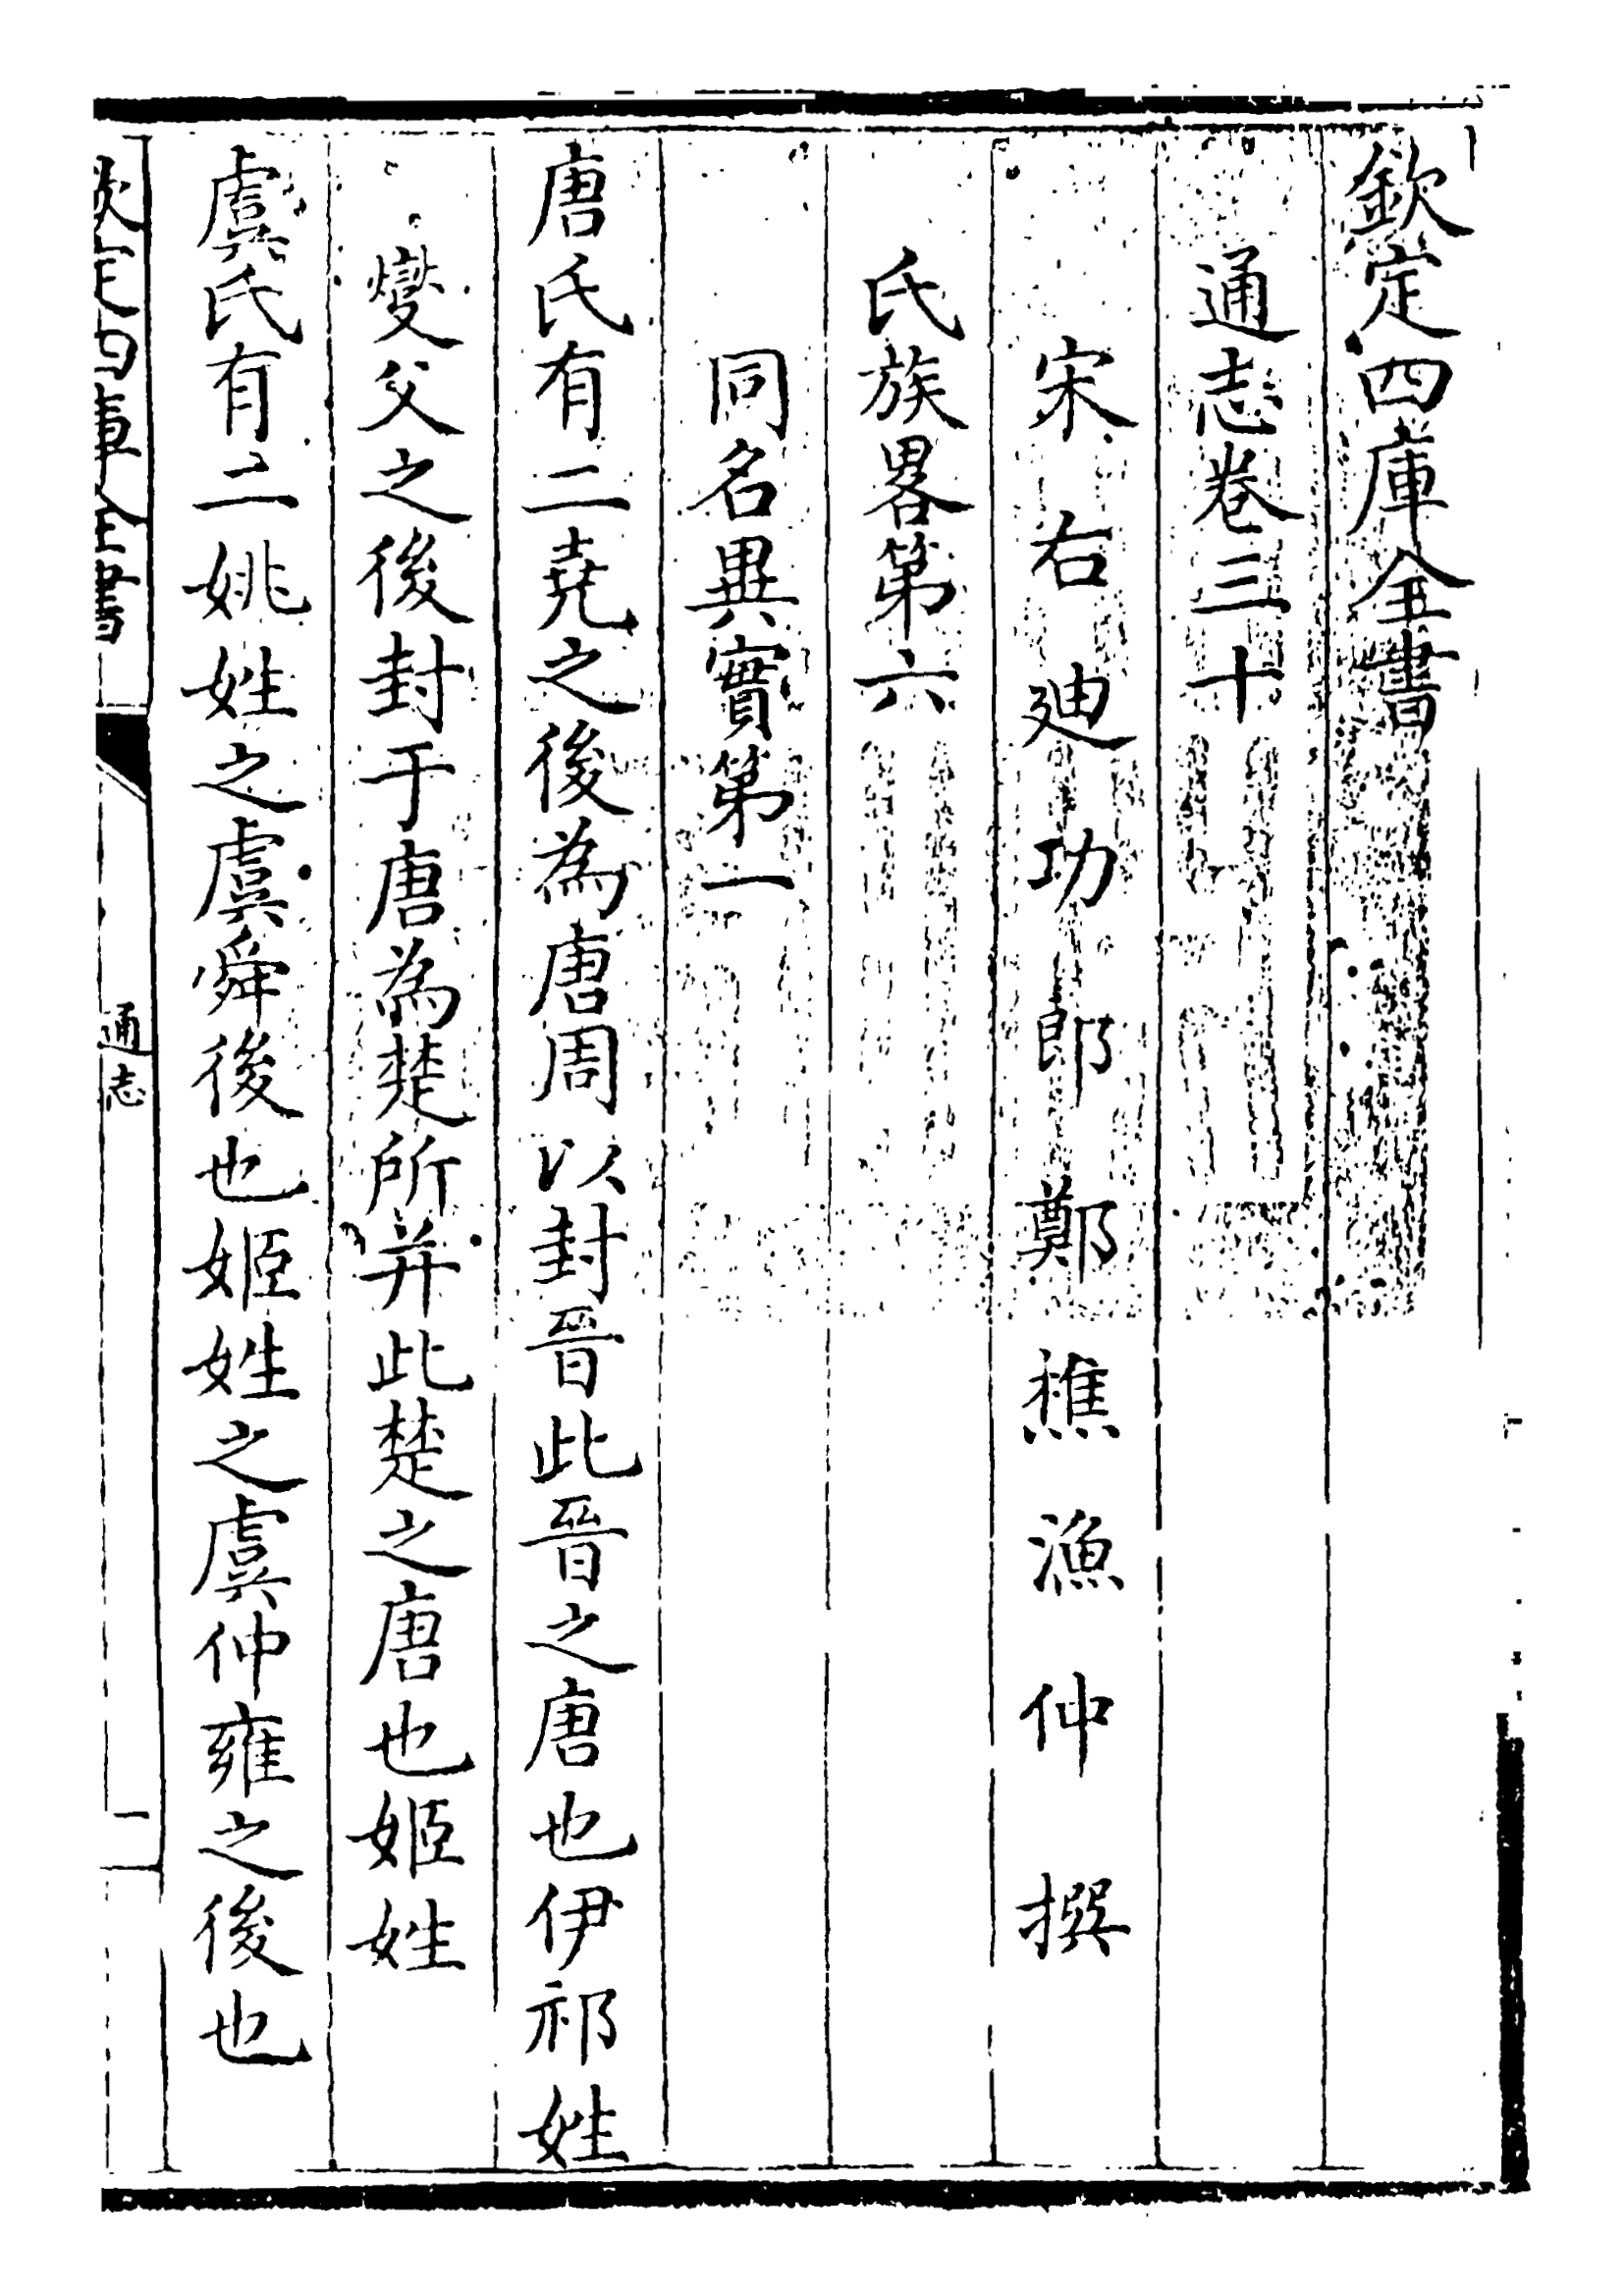 欽定四庫全書
通志卷三十
宋右廸功郎鄭樵漁仲撰
氏族畧第六
同名異實第一
唐氏有二堯之後為唐周以封晉此晉之唐也伊祁姓
燮父之後封于唐為楚所并此楚之唐也姬姓
虞氏有二姚姓之虞舜後也姬姓之虞仲雍之後也
欽定四庫全書
通志
一